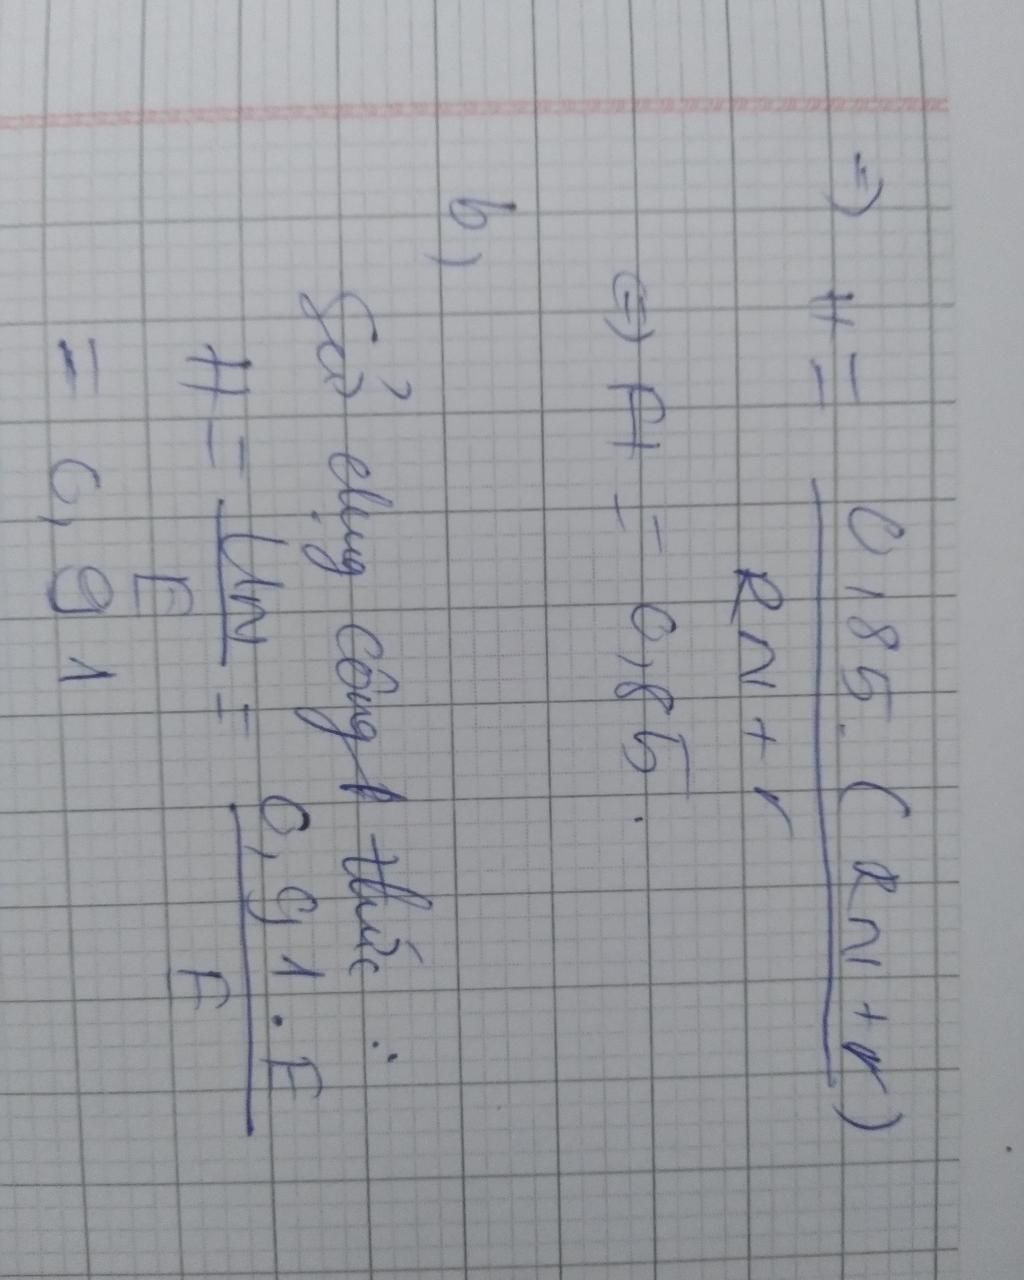 =) H = 0,85. ( RN + r)
RN + r
(=) H = 0,85.
b)
Sử dụng công thức :
H = UN = 0,91.E
E E
= 0,91